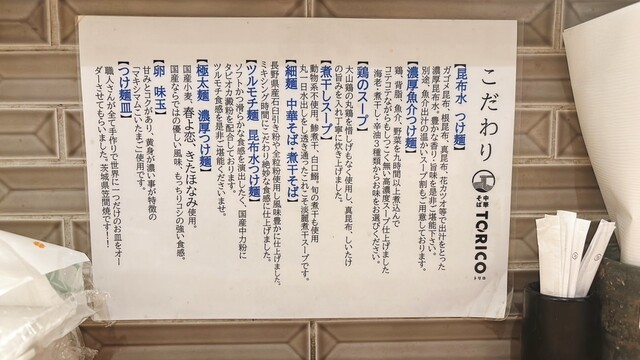 こだわり
中華そば TORICO
【昆布水 つけ麺】
ガゴメ昆布、根昆布、真昆布、花カツオ等で出汁をとった
濃厚昆布水。豊かな香り・旨味を是非ご堪能下さい。
別途、魚介出汁の温かいスープ割もご用意しております。
【濃厚魚介つけ麺】
鶏、背脂、魚介、野菜を九時間以上煮込んで
コテコテながらもしつこく無い高濃度スープ仕上げました
海老・煮干し・辛油3種類からお味をお選びください。
【鶏のスープ】
大山鶏の丸鶏を惜しげもなく使用し、真昆布、しいたけ
の旨みを入れ丁寧に炊き上げました。
【煮干しスープ】
動物系不使用。鯵煮干、白口鰯、旬の煮干も使用
丸一日水出しをし透き通ったこれこそ淡麗煮干スープです。
【細麺 中華そば・煮干そば】
長野県産石臼引き粉や全粒粉使用し風味豊かに仕上げました。
ミキシング時間にこだわり絶妙な食感に仕上げました。
【ツルモチ麺 昆布水つけ麺】
ソフトかつ滑らかな食感を演出したく、国産中力粉に
タピオカ澱粉を配合しております。
ツルモチ食感を是非ご堪能くださいませ。
【極太麺 濃厚つけ麺】
国産小麦、春よ恋、きたほなみ使用。
国産ならではの優しい風味、もっちりコシの強い食感。
【卵 味玉】
甘みとコクがあり、黄身が濃い事が特徴の
「マキシマムこいたまご」使用です。
【つけ麺皿】
職人さんが全て手作りで世界に一つだけのお皿をオー
ダーさせてもらいました。茨城県笠間焼です!!!